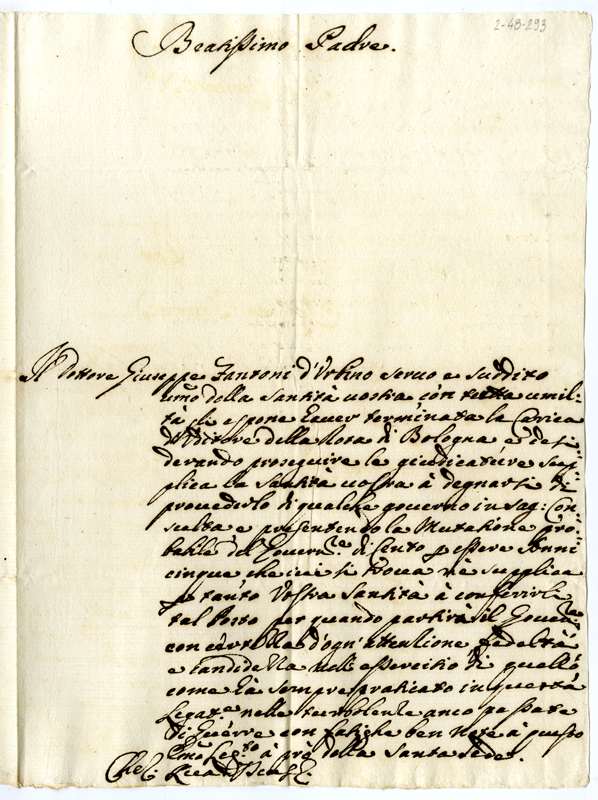 2-48-293
Beatissimo Padre.
Il Dottore Giuseppe Fantoni d'Urbino servo e suddito
umo della Santità vostra con tutta umil=
tà gli espone haver terminata la Carica
d'Uditore della Rota di Bologna e desi=
derando proseguire le giudicature sup=
plica la Santità vostra à degnarsi di
provederlo di qualche governo in Sag: Con=
sulta e presentendo la Mutatione pro=
babile del Governre di Cento p essere Anni
cinque che ivi si trova nè supplica
p tanto Vostra Santità à conferirli
tal Posto per quando partirà il Governre
con certezza d'ogn'attentione fedeltà
e candidezza nell'essercitio di quello
come hà sempre praticato in questa
Legatne nelle turbolenze anco passate
di Guerre con fatighe ben note à questo
Emo Legto à prò della Santa Sede.
Che